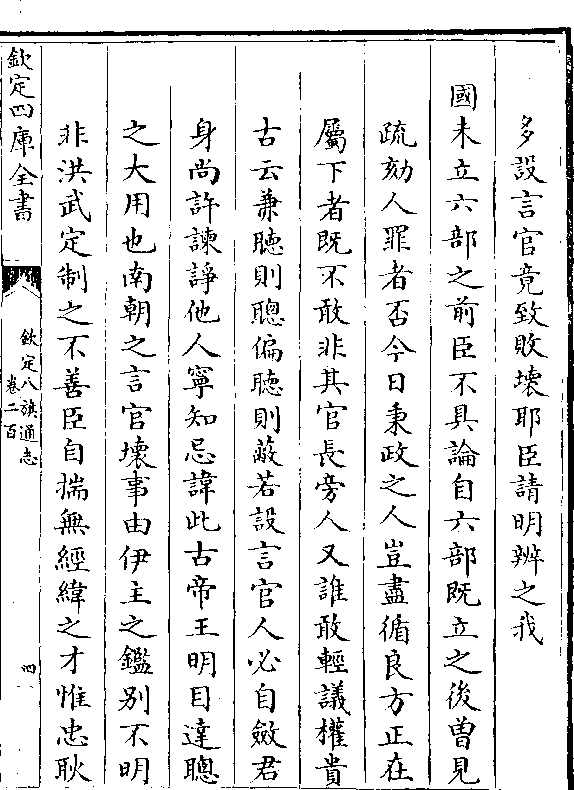 多設言官竟致敗壞耶臣請明辨之我
國未立六部之前臣不具論自六部既立之後曽見
疏劾人罪者否今日秉政之人豈盡循良方正在
屬下者既不敢非其官長旁人又誰敢輕議權貴
古云兼聴則聰偏聴則蔽若設言官人必自斂君
身尚許諫諍他人寧知忌諱此古帝王明目達聰
之大用也南朝之言官壞事由伊主之鑑別不明
非洪武定制之不善臣自揣無經緯之才惟忠耿
欽定四庫全書
欽定八旗通志
卷二百
四